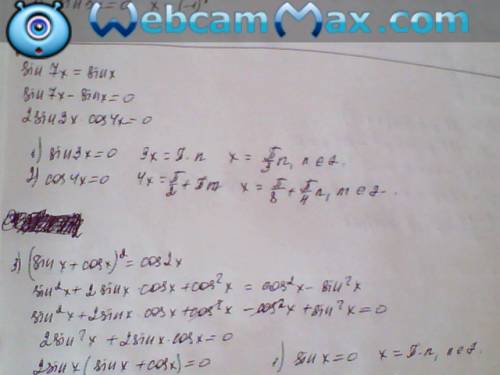 WebcamMax.com
sin 7x = sinx
sin 7x - sinx = 0
2sin3x cos4x = 0
1) sin3x = 0 3x = π·n x = π/3 n, n ∈ z.
2) cos4x = 0 4x = π/2 + πn x = π/8 + π/4 n, n ∈ z.
3) (sin x + cosx)² = cos2x
sin²x + 2sinx cosx + cos²x = cos²x - sin²x
sin²x + 2sinx cosx + cos²x - cos²x + sin²x = 0
2sin²x + 2sinx·cosx = 0
2sinx (sinx + cosx) = 0 1) sinx = 0 x = π·n, n ∈ z.